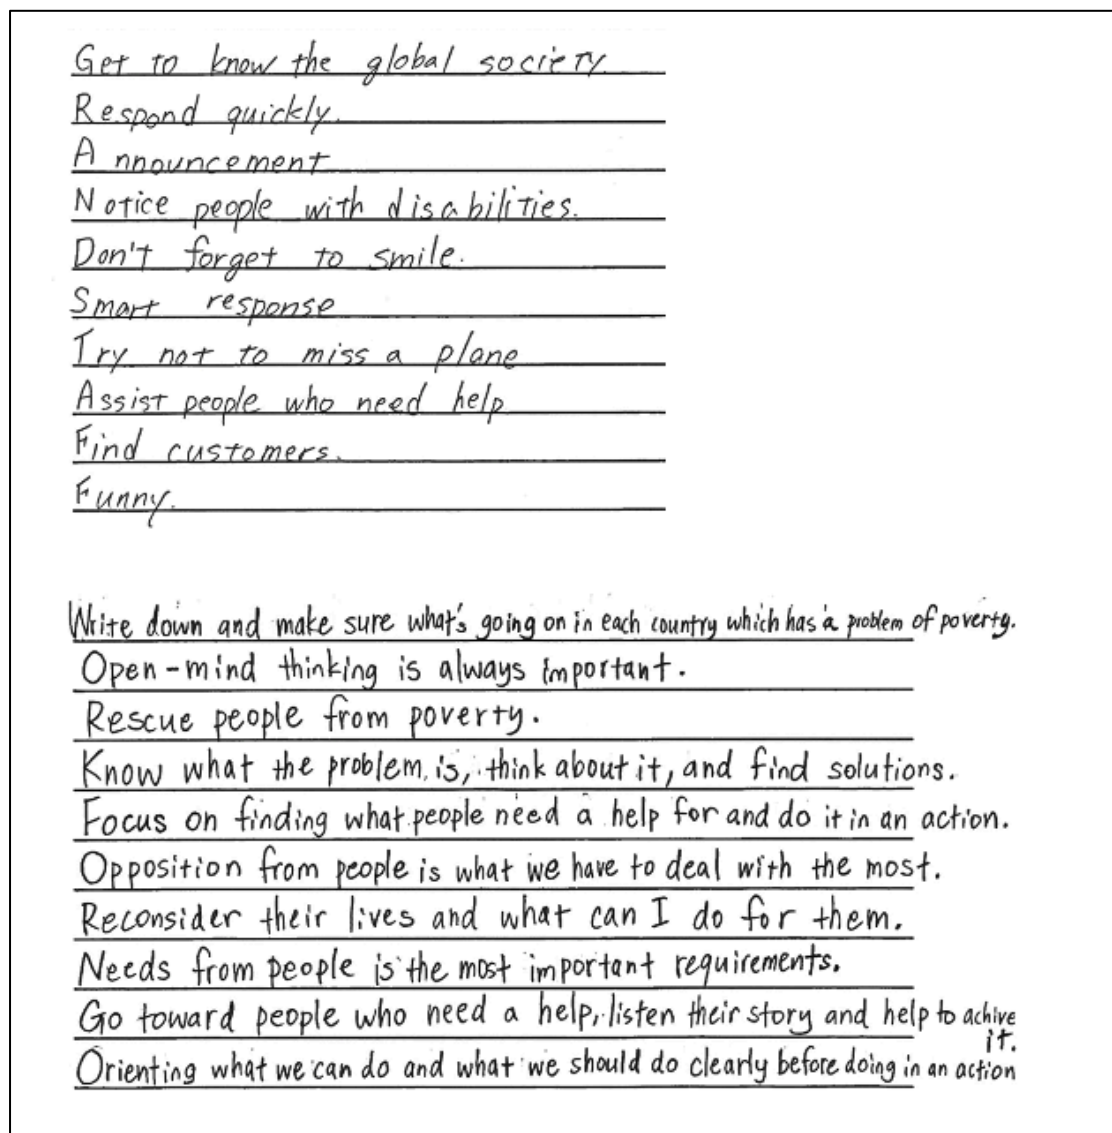 Get to know the global society
Respond quickly.
Announcement
Notice people with disabilities.
Don't forget to smile.
Smart response
Try not to miss a plane
Assist people who need help
Find customers.
Funny.
Write down and make sure what's going on in each country which has a problem of poverty.
Open-mind thinking is always important.
Rescue people from poverty.
Know what the problem is, think about it, and find solutions.
Focus on finding what people need a help for and do it in an action.
Opposition from people is what we have to deal with the most.
Reconsider their lives and what can I do for them.
Needs from people is the most important requirements.
Go toward people who need a help, listen their story and help to achive
it.
Orienting what we can do and what we should do clearly before doing in an action